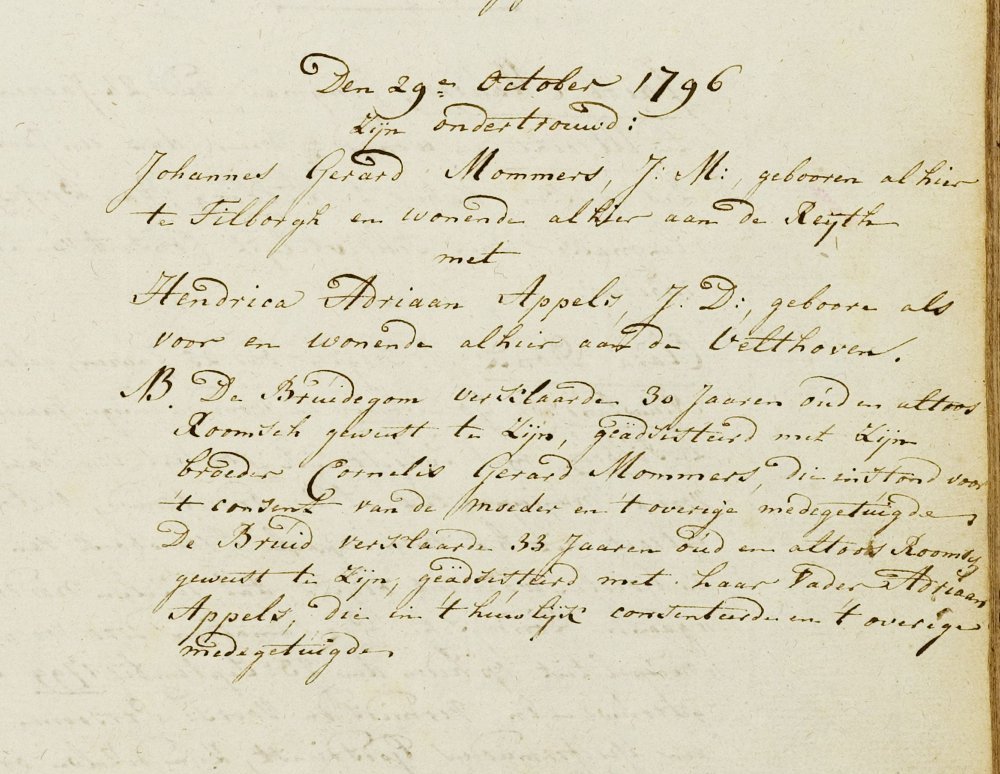 Den 29e October 1796
Zijn ondertrouwd:
Johannes Gerard Mommers, J: M:, gebooren alhier
te Tilborgh en wonende alhier aan de Reijth
met
Hendrica Adriaan Appels, J: D:, geboore als
voor en wonende alhier aan de Velthoven.
NB. De Bruidegom verklaarde 30 Jaaren oud en altoos
Roomsch geweest te Zijn, geädsisteerd met Zijn
broeder Cornelis Gerard Mommers, die instond voor
't consent van de moeder en 't overige medegetuigde,
De Bruid verklaarde 33 Jaaren oud en altoos Roomsch
geweest te Zijn, geädsisteerd met haar Vader Adriaan
Appels, die in 't huwlijk consenteerde en 't overige
medegetuigde,